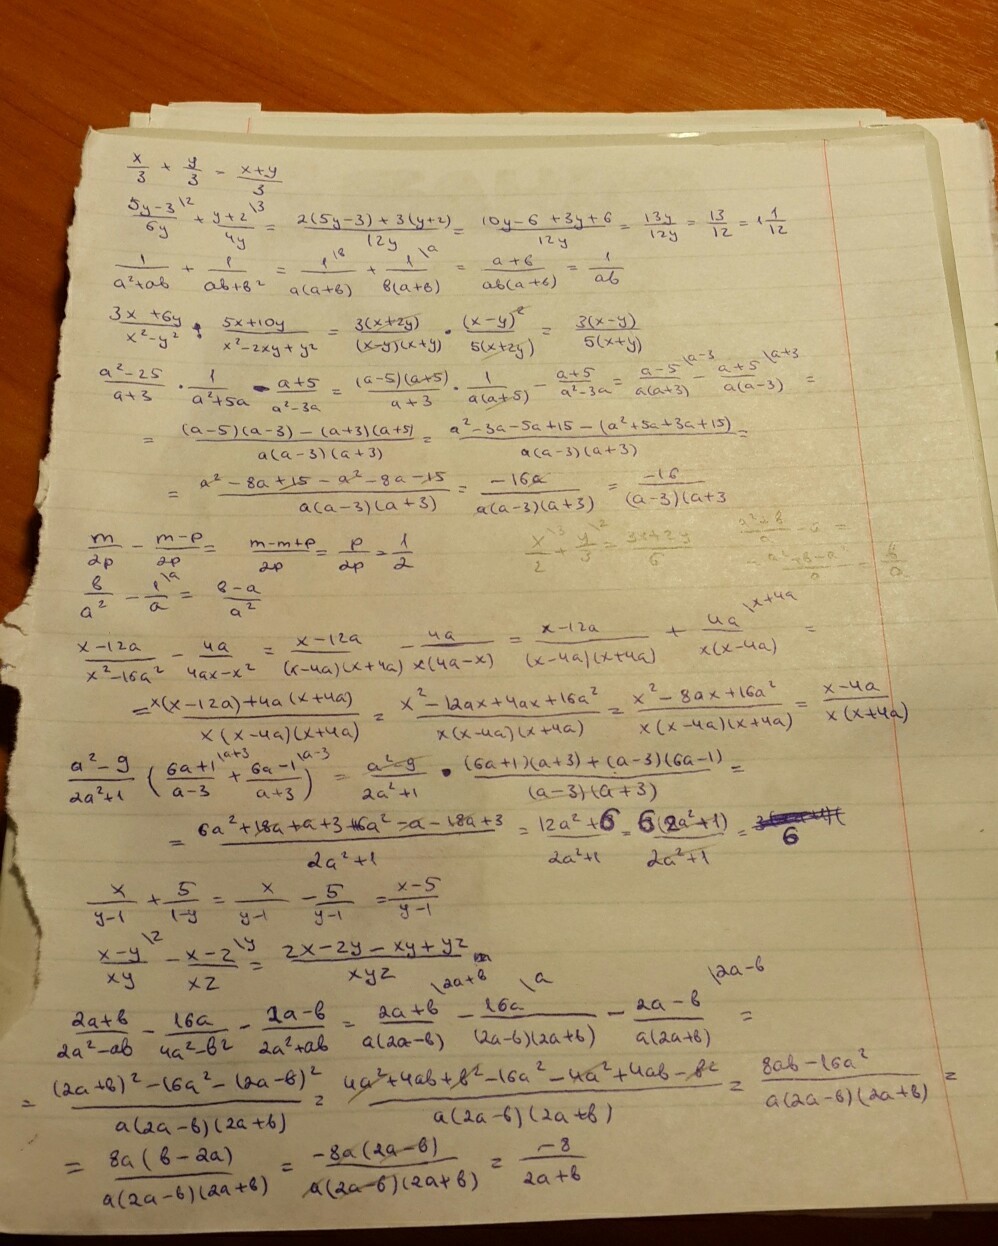 x/3 + y/3 - x+y/3
5y-3\2/6y + y+2\3/4y = 2(5y-3)+3(y+2)/12y = 10y-6+3y+6/12y = 13y/12y = 13/12 = 1 1/12
1/a²+ab + 1/ab+b² = 1\b/a(a+b) + 1\a/b(a+b) = a+b/ab(a+b) = 1/ab
3x+6y/x²-y² : 5x+10y/x²-2xy+y² = 3(x+2y)/(x-y)(x+y) · (x-y)²/5(x+2y) = 3(x-y)/5(x+y)
a²-25/a+3 · 1/a²+5a - a+5/a²-3a = (a-5)(a+5)/a+3 · 1/a(a+5) - a+5/a²-3a = a-5\a-3/a(a+3) - a+5\a+3/a(a-3) =
= (a-5)(a-3)-(a+3)(a+5)/a(a-3)(a+3) = a²-3a-5a+15-(a²+5a+3a+15)/a(a-3)(a+3) =
= a²-8a+15-a²-8a-15/a(a-3)(a+3) = -16a/a(a-3)(a+3) = -16/(a-3)(a+3
m/2p - m-p/2p = m-m+p/2p = p/2p = 1/2 x\3/2 + y\2/3 = 3x+2y/6
b/a² - 1\a/a = b-a/a²
x-12a/x²-16a² - 4a/4ax-x² = x-12a/(x-4a)(x+4a) - 4a/x(4a-x) = x-12a/(x-4a)(x+4a) + 4a\x+4a/x(x-4a) =
= x(x-12a)+4a(x+4a)/x(x-4a)(x+4a) = x²-12ax+4ax+16a²/x(x-4a)(x+4a) = x²-8ax+16a²/x(x-4a)(x+4a) = x-4a/x(x+4a)
a²-9/2a²+1 (6a+1\a+3/a-3 + 6a-1\a-3/a+3) = a²-9/2a²+1 · (6a+1)(a+3)+(a-3)(6a-1)/(a-3)(a+3) =
= 6a²+18a+a+3+6a²-a-18a+3/2a²+1 = 12a²+6/2a²+1 = 6(2a²+1)/2a²+1 = 6
x/y-1 + 5/1-y = x/y-1 - 5/y-1 = x-5/y-1
x-y\z/xy - x-z\y/xz = zx-zy-xy+yz/xyz
2a+b/2a²-ab - 16a/4a²-b² - 2a-b/2a²+ab = 2a+b\2a+b/a(2a-b) - 16a\a/(2a-b)(2a+b) - 2a-b\2a-b/a(2a+b) =
= (2a+b)²-16a²-(2a-b)²/a(2a-b)(2a+b) = 4a²+4ab+b²-16a²-4a²+4ab-b²/a(2a-b)(2a+b) = 8ab-16a²/a(2a-b)(2a+b) =
= 8a(b-2a)/a(2a-b)(2a+b) = -8a(2a-b)/a(2a-b)(2a+b) = -8/2a+b